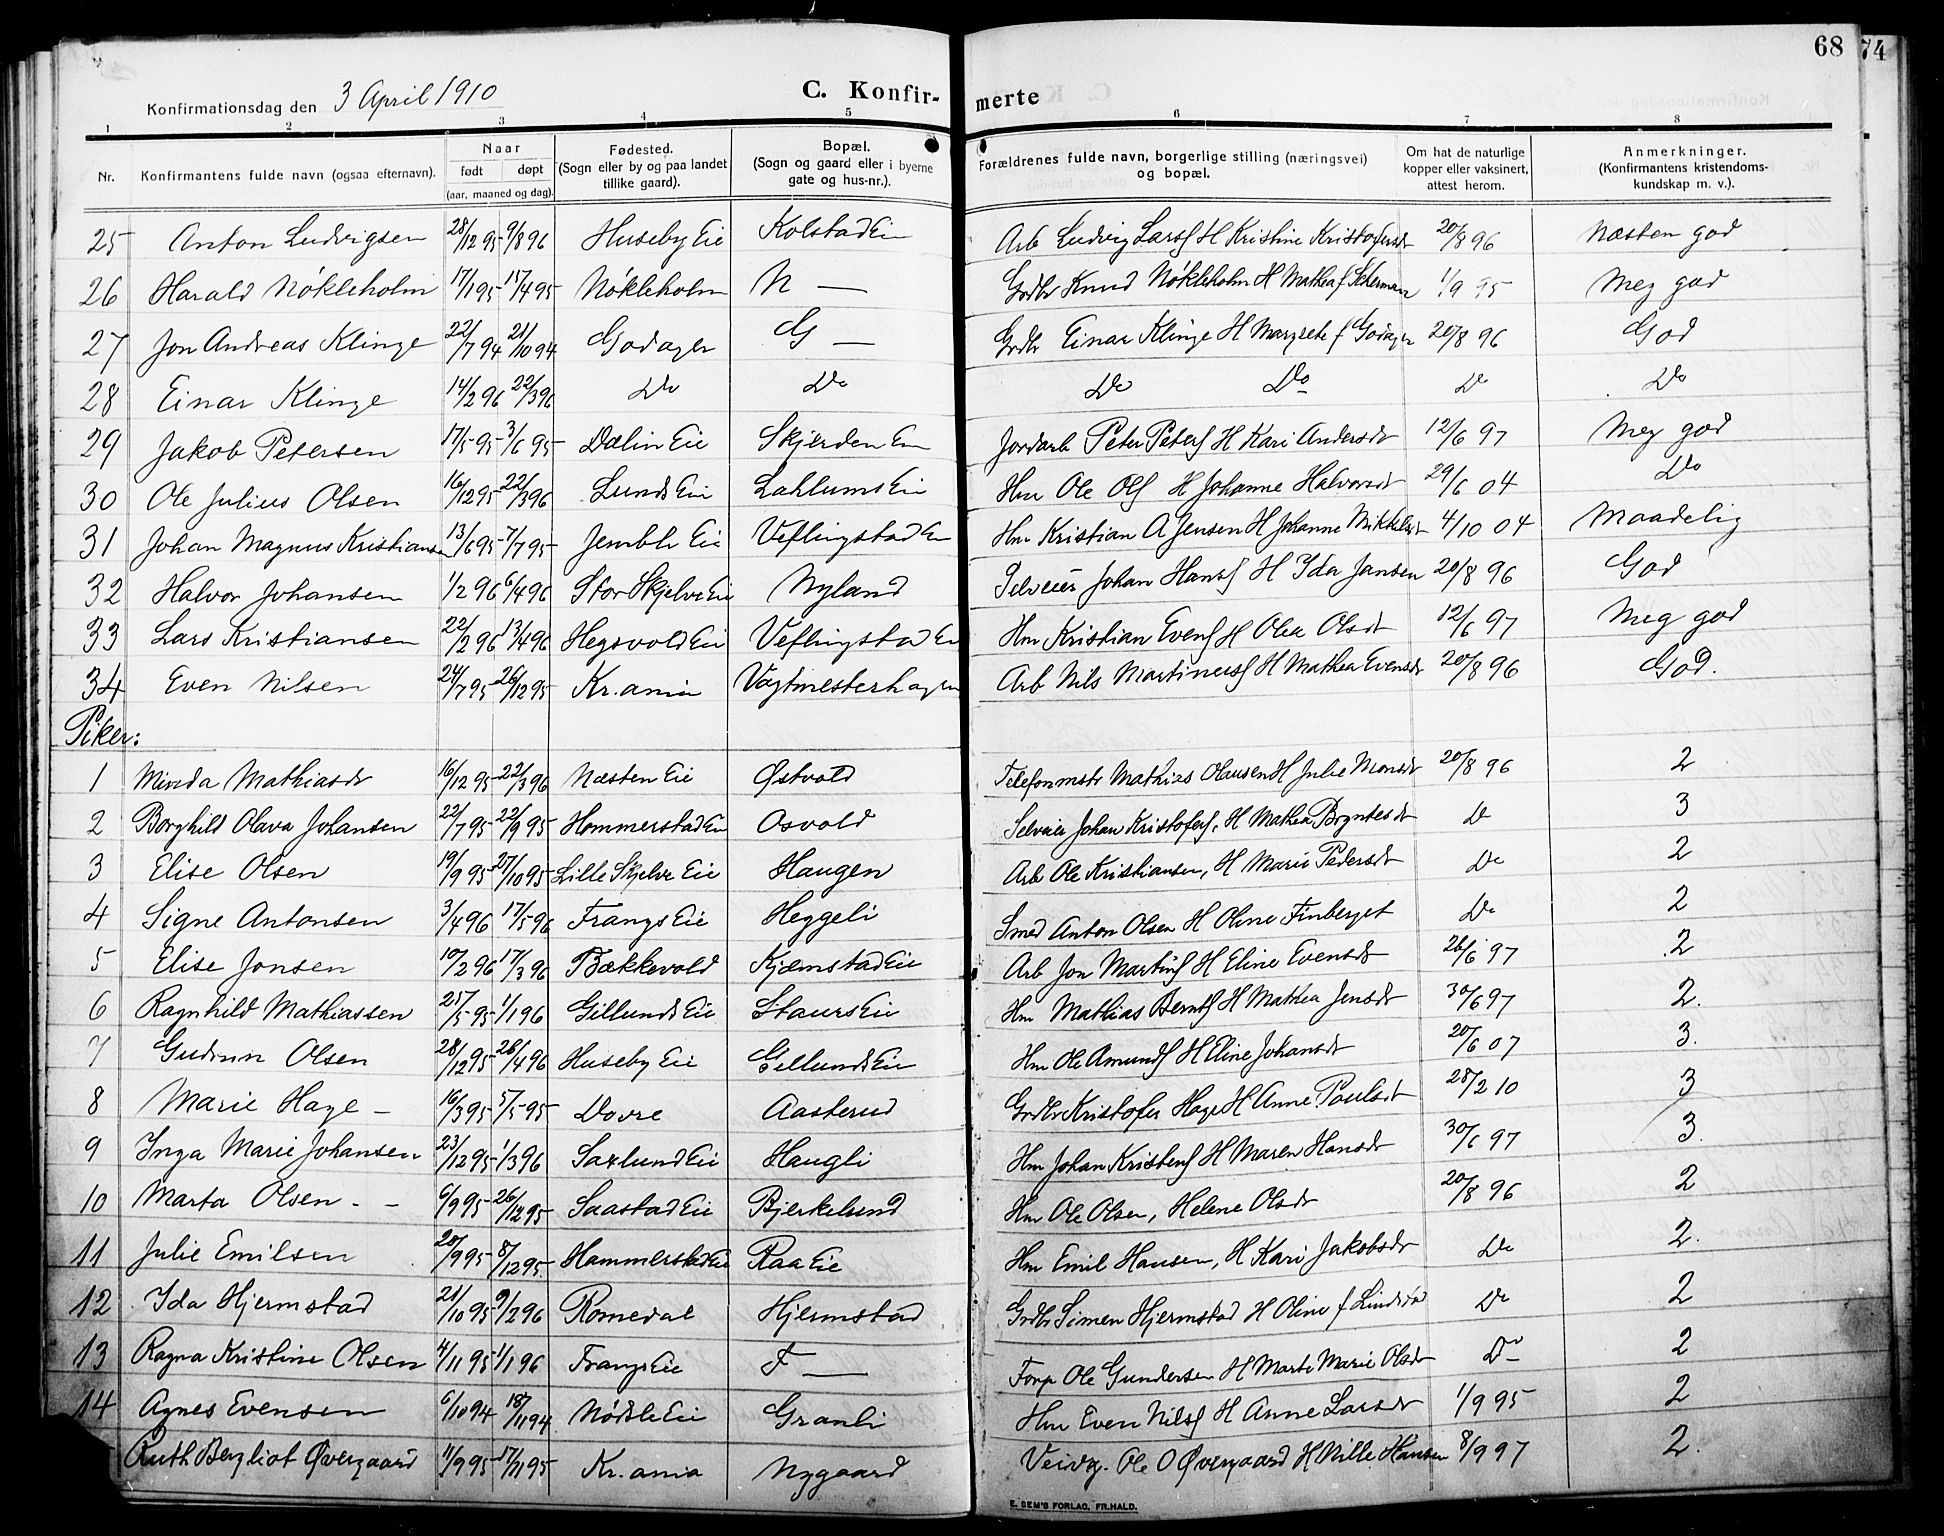 68 74
Konfirmationsdag den 3 April 1910 C. Konfir- merte
1 2 3 4 5 6 7 8
Nr. Konfirmantens fulde navn (ogsaa efternavn). Naar født døpt (aar, maaned og dag). Fødested. (Sogn eller by og paa landet tillike gaard). Bopæl. (Sogn og gaard eller i byerne gate og hus-nr.). Forældrenes fulde navn, borgerlige stilling (næringsvei) og bopæl. Om hat de naturlige kopper eller vaksinert, attest herom. Anmerkninger. (Konfirmantens kristendoms-kundskap m. v.).
25 Anton Ludvigsen 28/12 95 9/8 96 Huseby Eie Kolstad Eie Arb Ludvig Lars H Kristine Kristofersdt 20/8 96 Næsten god
26 Harald Nökleholm 17/1 95 15/4 95 Nökleholm N — Grdbr Knud Nökleholm H Mathea f 1/9 95 Meg god
27 Jon Andreas Klinge 22/7 94 21/10 94 Godager G — Grdbr Einar Klinge H Margrete f Godager 20/8 96 God
28 Einar Klinge 14/2 96 22/3 96 Do Do Do Do Do Do
29 Jakob Petersen 17/5 95 3/6 95 Dælin Eie Skjerden Eie Jordarb Peter Peters H Kari Andersdt 12/6 97 Meg god
30 Ole Julius Olsen 16/12 95 22/3 96 Lunds Eie Lahlums Eie Hm Ole Ols H Johanne Halvorsdt 29/6 04 Do
31 Johan Magnus Kristiansen 13/6 95 7/7 95 Jembli Eie Veflingstad Eie Hm Kristian A Jensen H Johanne Mikkelsdt 4/10 04 Maadelig
32 Halvor Johansen 1/2 96 6/4 96 Stor Skjelve Eie Nyland Selveier Johan Hans H Ida Jansen 20/8 96 God
33 Lars Kristiansen 22/2 96 13/4 96 Hegsvold Eie Veflingstad Eie Hm Kristian Evens H Olea Olsdt 12/6 97 Meg god
34 Even Nilsen 24/7 95 26/12 95 Kr.ania Vagtmesterhagen Arb Nils Martinius H Mathea Evensdt 20/8 96 God.
Piker:
1 Minda Mathiasdt 16/12 95 22/3 96 Næsten Eie Østvold Telefonmstr Mathias Olausen H Julie Monsdt 20/8 96 2
2 Borghild Olava Johansen 22/7 95 22/9 95 Hommerstad Eie Osvold Selveier Johan Kristofers, H Mathea Bryntesdt Do 3
3 Elise Olsen 19/9 95 27/10 95 Lille Skjelve Eie Haugen Arb Ole Kristiansen, H Marie Pedersdt Do 2
4 Signe Antonsen 3/4 96 17/5 96 Frangs Eie Heggeli Smed Anton Olsen H Oline Finberget Do 2
5 Elise Jonsen 10/2 96 17/3 96 Bækkevold Kjemstad Eie Arb Jon Martins H Eline Evensdt 26/6 97 2
6 Ragnhild Mathiassen 25/5 95 1/1 96 Gillunds Eie Staurs Eie Hm Mathias Bernts H Mathea Jensdt 30/6 97 2.
7 Gudrun Olsen 28/12 95 26/4 96 Huseby Eie Gillunds Eie Hm Ole Amunds H Eline Johansdt 20/6 07 3.
8 Marie Hage — 16/3 95 5/5 95 Dovre Aasterud Grdbr Kristofer Hage H Anne Paulsdt 28/2 10 3
9 Inga Marie Johansen 23/12 95 1/3 96 Saxlund Eie Haugli Hm Johan Kristens H Maren Hansdt 30/6 97 3.
10 Marta Olsen - - 6/9 95 26/12 95 Saastad Eie Bjerkelund Hm Ole Olsen, Helene Olsdt 20/8 96 2
11 Julie Emilsen 20/9 95 8/12 95 Hammerstad Eie Raa Eie Hm Emil Hansen, H Kari Jakobsdt Do 2.
12 Ida Hjermstad 21/10 95 9/2 96 Romedal Hjermstad Grdbr Simen Hjermstad H Oline f Do 2
13 Ragna Kristine Olsen 4/11 95 1/1 96 Frangs Eie F — Forp Ole Gundersen H Marte Marie Olsdt Do 2
14 Agnes Evensen 6/10 94 18/11 94 Nödsle Eie Granli Hm Even Nils H Anne Larsdt 1/9 95 2
Ruth Bergliot Øvergaard 11/9 95 17/11 95 Kr.ania Nygaard Veivg. Ole O Øvergaard H Nille Hansen 8/9 97 2.
E. SEM'S FORLAG, FR.HALD.